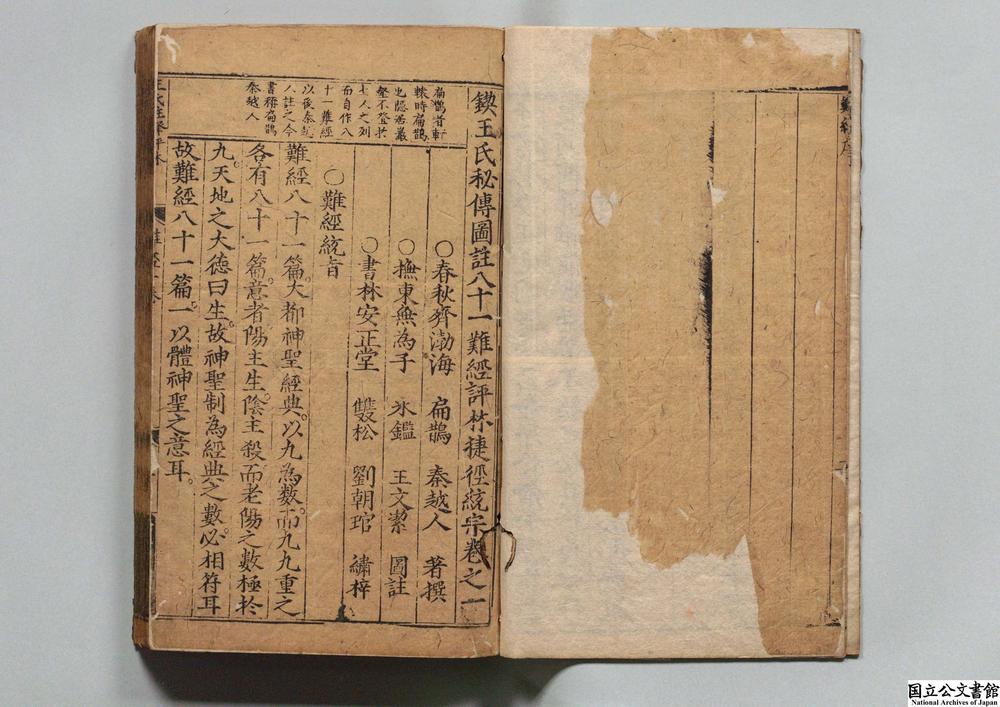 難經序
鍥王氏秘傳圖註八十一難經評林捷徑統宗卷之一
○春秋齊渤海 扁鵲 秦越人 著撰
○撫東無為子 氷鑑 王文潔 圖註
○書林安正堂 雙松 劉朝琯 繡梓
扁鵲者軒
轅時扁鵲
也隱居巖
壑不登於
七人之列
而自作八
十一難經
以後秦越
人註之今
書稱扁鵲
秦越人
○難經統旨
難經八十一篇大都神聖經典以九為數而九九重之
各有八十一篇意者陽主生陰主殺而老陽之數極於
九天地之大德曰生故神聖制為經典之數必相符耳
故難經八十一篇一以體神聖之意耳
国立公文書館
National Archives of Japan